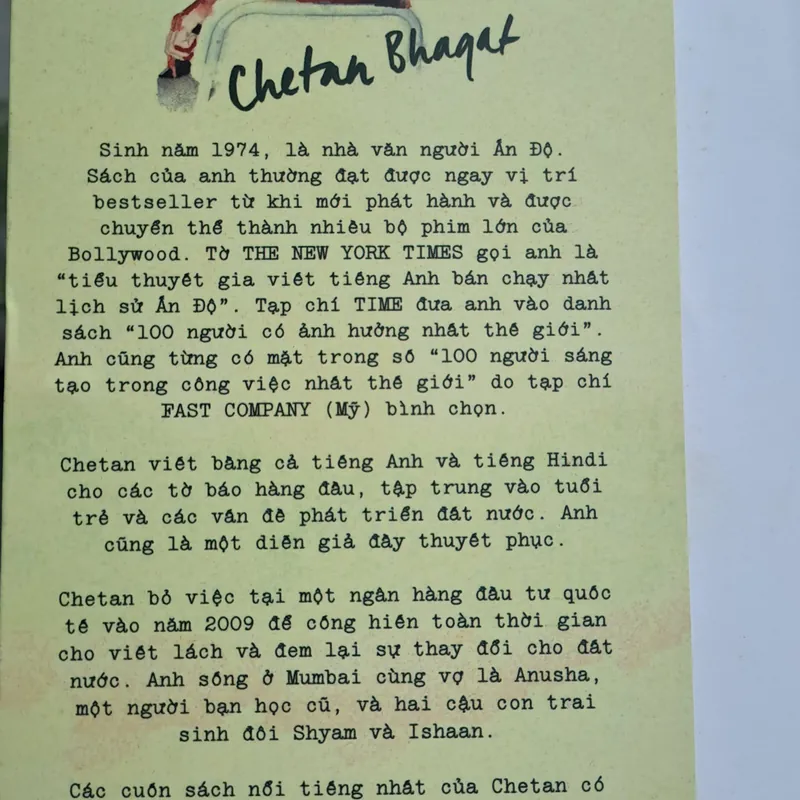 Chetan Bhagat
Sinh năm 1974, là nhà văn người Ấn Độ.
Sách của anh thường đạt được ngay vị trí
bestseller từ khi mới phát hành và được
chuyển thể thành nhiều bộ phim lớn của
Bollywood. Tờ THE NEW YORK TIMES gọi anh là
“tiểu thuyết gia viết tiếng Anh bán chạy nhất
lịch sử Ấn Độ”. Tạp chí TIME đưa anh vào danh
sách “100 người có ảnh hưởng nhất thế giới”.
Anh cũng từng có mặt trong số “100 người sáng
tạo trong công việc nhất thế giới” do tạp chí
FAST COMPANY (Mỹ) bình chọn.
Chetan viết bằng cả tiếng Anh và tiếng Hindi
cho các tờ báo hàng đầu, tập trung vào tuổi
trẻ và các vấn đề phát triển đất nước. Anh
cũng là một diễn giả đầy thuyết phục.
Chetan bỏ việc tại một ngân hàng đầu tư quốc
tế vào năm 2009 để cống hiến toàn thời gian
cho viết lách và đem lại sự thay đổi cho đất
nước. Anh sống ở Mumbai cùng vợ là Anusha,
một người bạn học cũ, và hai cậu con trai
sinh đôi Shyam và Ishaan.
Các cuốn sách nổi tiếng nhất của Chetan có